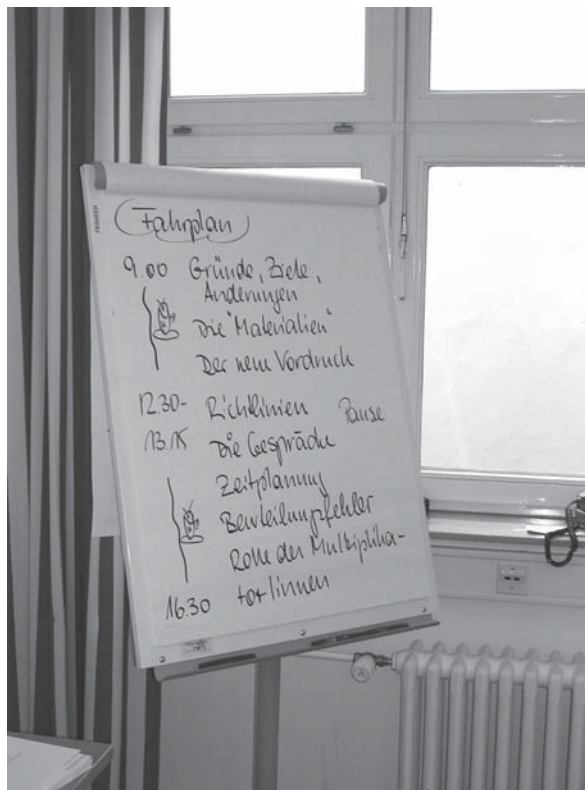 Fahrplan
9.00 Gründe, Ziele,
Änderungen
Die "Materialien"
Der neue Vordruck
12.30- Richtlinien Pause
13.15 Die Gespräche
Zeitplanung
Beurteilungsfehler
Rolle der Multiplika-
16.30 tor/innen